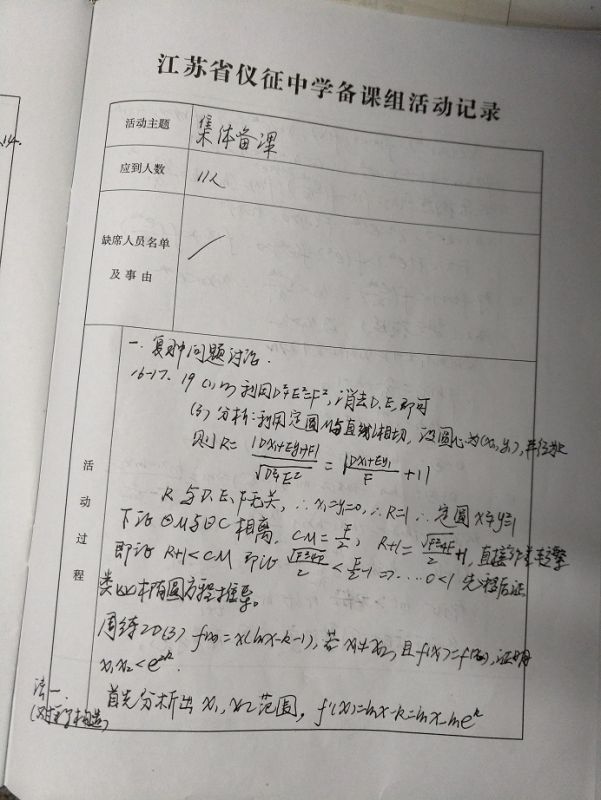 江苏省仪征中学备课组活动记录
活动主题
集体备课
应到人数
11人
缺席人员名单
及事由
活动过程
一.复习中问题讨论.
16-17. 19 利用D²+E²=F², 消去D.E.即可
(3) 分析:利用定圆M与直线l相切, 设圆心为(x₁,y₁),半径为R
则 R= |Dx₁+Ey₁+F| / √(D²+E²) = |(Dx₁+Ey₁)/F +1|
R与D.E.F无关, ∴x₁=y₁=0,∴R=1 ∴定圆x²+y²=1
下证⊙M与⊙C相离. CM=F/2, R+1=√(F²+4F)/2+1,
即证 R+1<CM 即证 √(F²+4F)/2 < F/2-1 ⇒… 0<1 先
类似 椭圆方程推导。
周练20(3) f(x)=x(lnx-k-1),若x₁≠x₂,且f(x₁)=f(x₂),证明
x₁x₂<e²ᵏ.
法一.
首先分析出x₁,x₂范围, f'(x)=lnx-k=lnx-lneᵏ